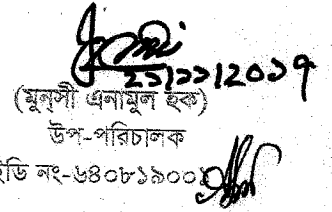 ২১/১১/২০১৭
(মুনসী এনামুল হক)
উপ-পরিচালক
ইডি নং-৬৪০৮১৯০০